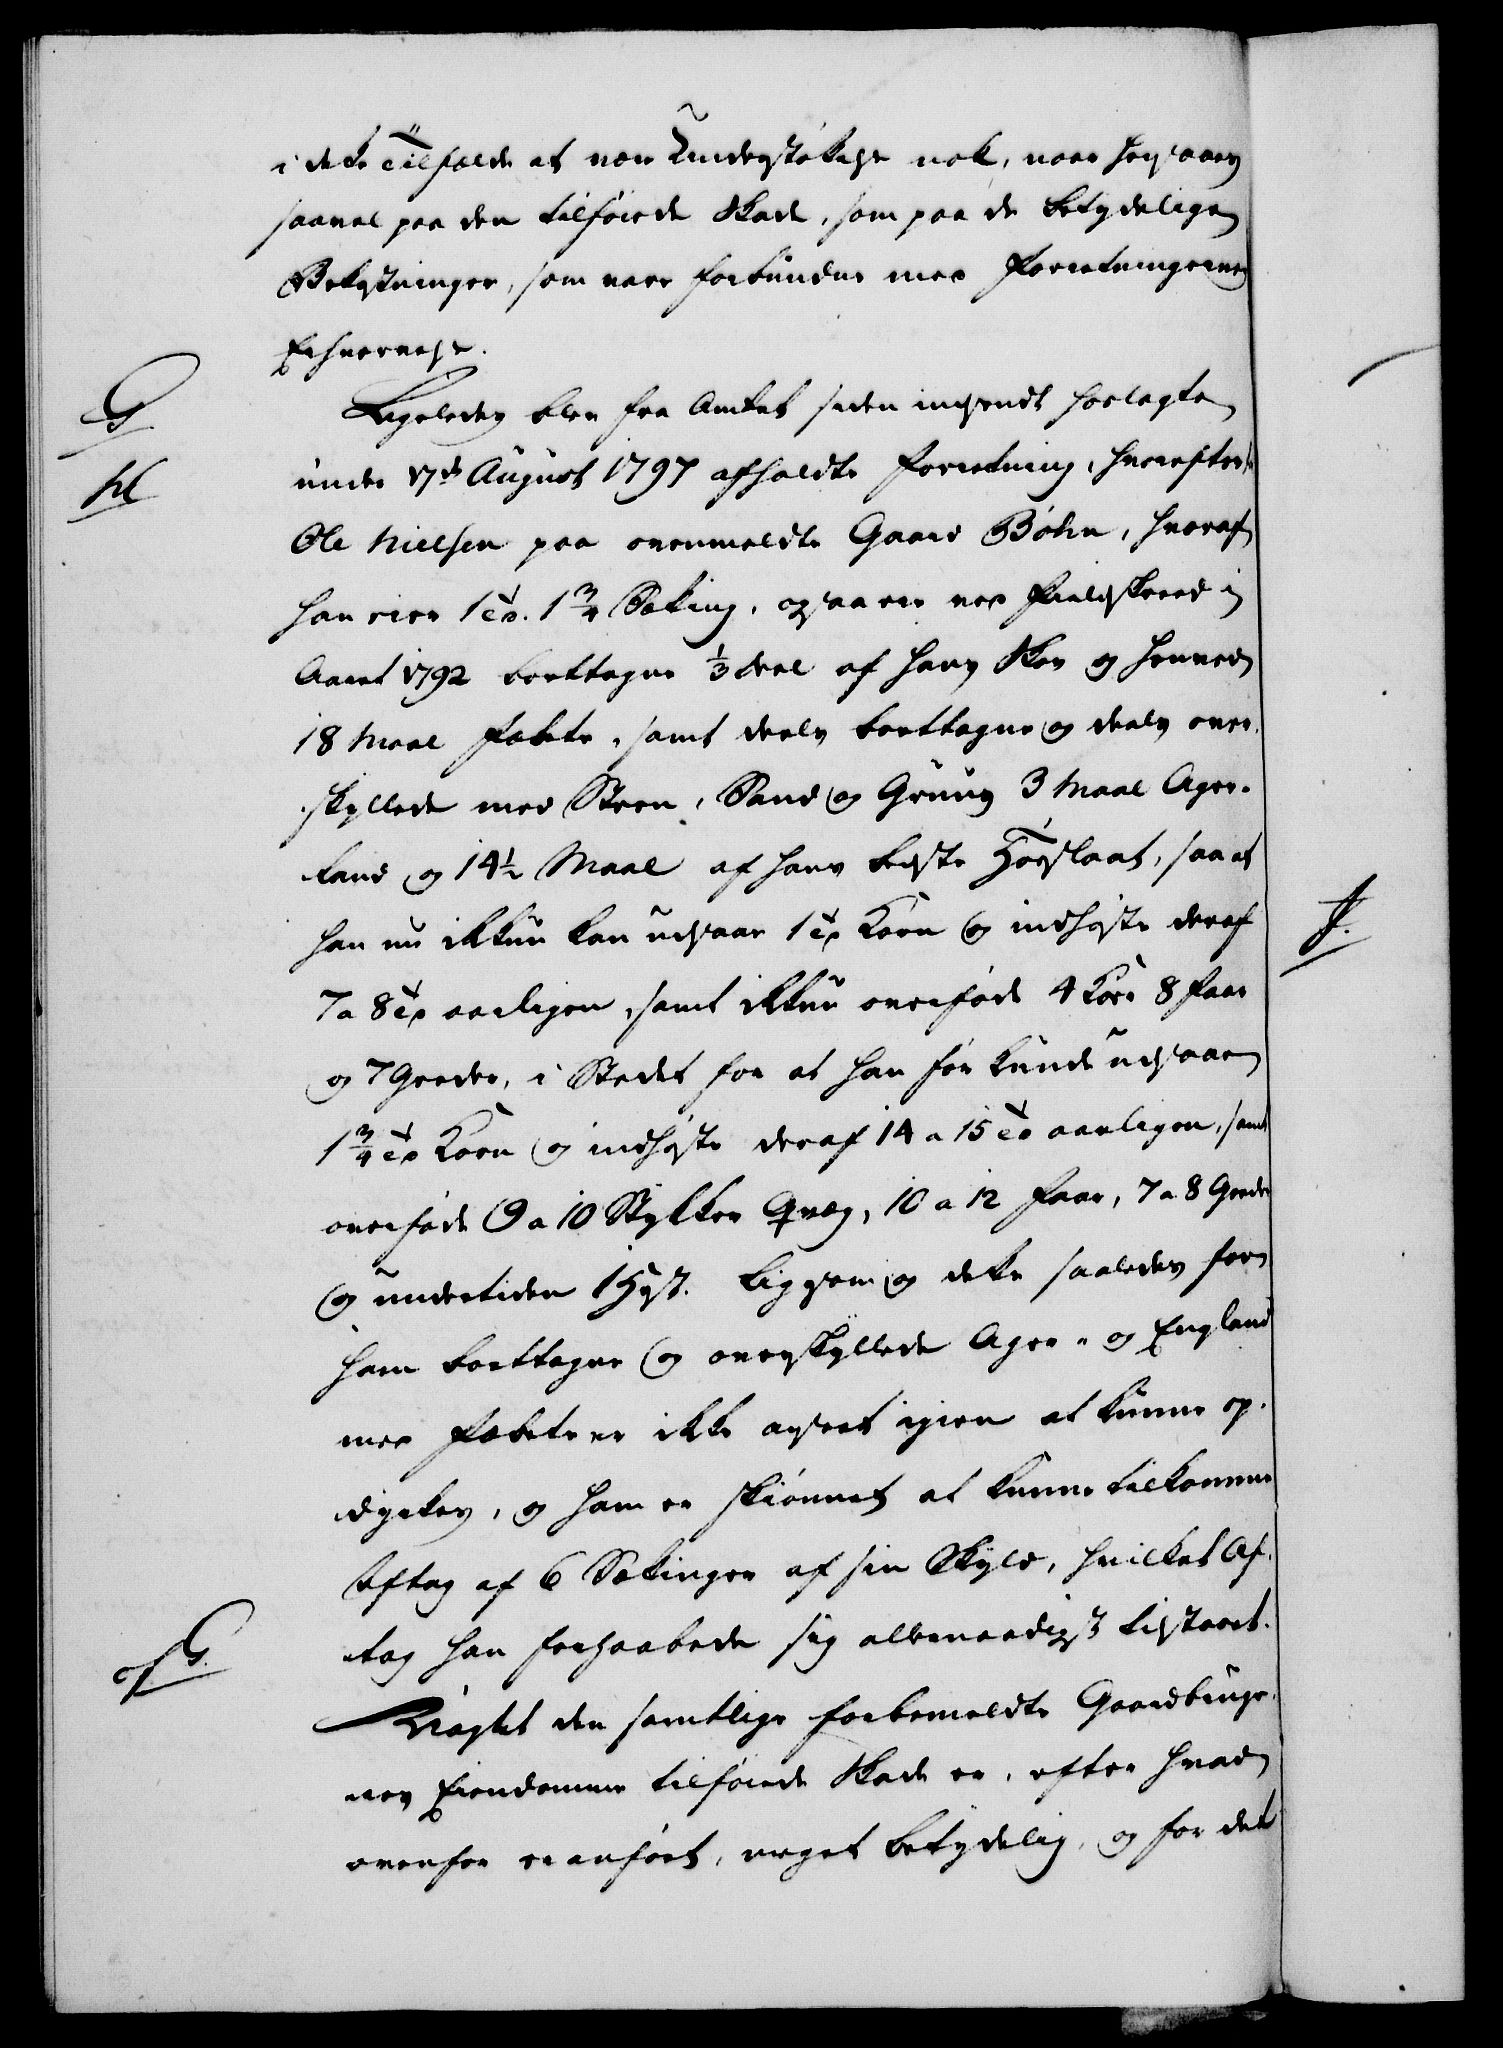 i dette Tilfælde at være Understøttelse nok, naar hensaaes
saavel paa den tilføiede Skade, som paa de betydelige
Bekostninger, som vare forbundne med Forretningernes
Erhvervelse.
G
Ligeledes blev fra Amtet siden indsendt hoslagte
H
under 17de August 1797 afholdte Forretning, hvorefter
Ole Nielsen paa ovenmeldte Gaard Bøhn, hvoraf
han eier 1 Td. 1 3/4 Setting, ogsaa er ved Fieldskreed i
Aaret 1792 borttagne 1/3 deel af hans Skov og henved
18 Maal Fæbete, samt deels borttagne og deels over-
skyllede med Steen, Sand og Gruus 3 Maal Ager-
land og 14 1/2 Maal af hans beste Høeslaat, saa at
han nu ikkun kan udsaae 1 Td Korn og indhøste deraf
7 a 8 Td aarligen, samt ikkun overføde 4 Køer 8 Faar
og 7 Geeder, i Stedet for at han før kunde udsaae
1 3/4 Td Korn og indhøste deraf 14 a 15 Td aarligen, samt
overføde 9 a 10 Stykker Qvæg, 10 a 12 Faar, 7 a 8 Geeder
og undertiden 1 Hest. Ligesom og dette saaledes for
ham borttagne og overskyllede Ager- og England
med Fæbete er ikke anseet igien at kunne op-
dyrkes, og ham er skiønnet at kunne tilkomme
Aftag af 6 Settinger af sin Skyld, hvilket Af-
tag han forhaabede sig allernaadigst tilstaaet.
G.
Uagtet den samtlige forbemeldte Gaardbruge-
res Eiendomme tilføiede Skade er, efter hvad
ovenfor er anført, meget betydelig, og for det